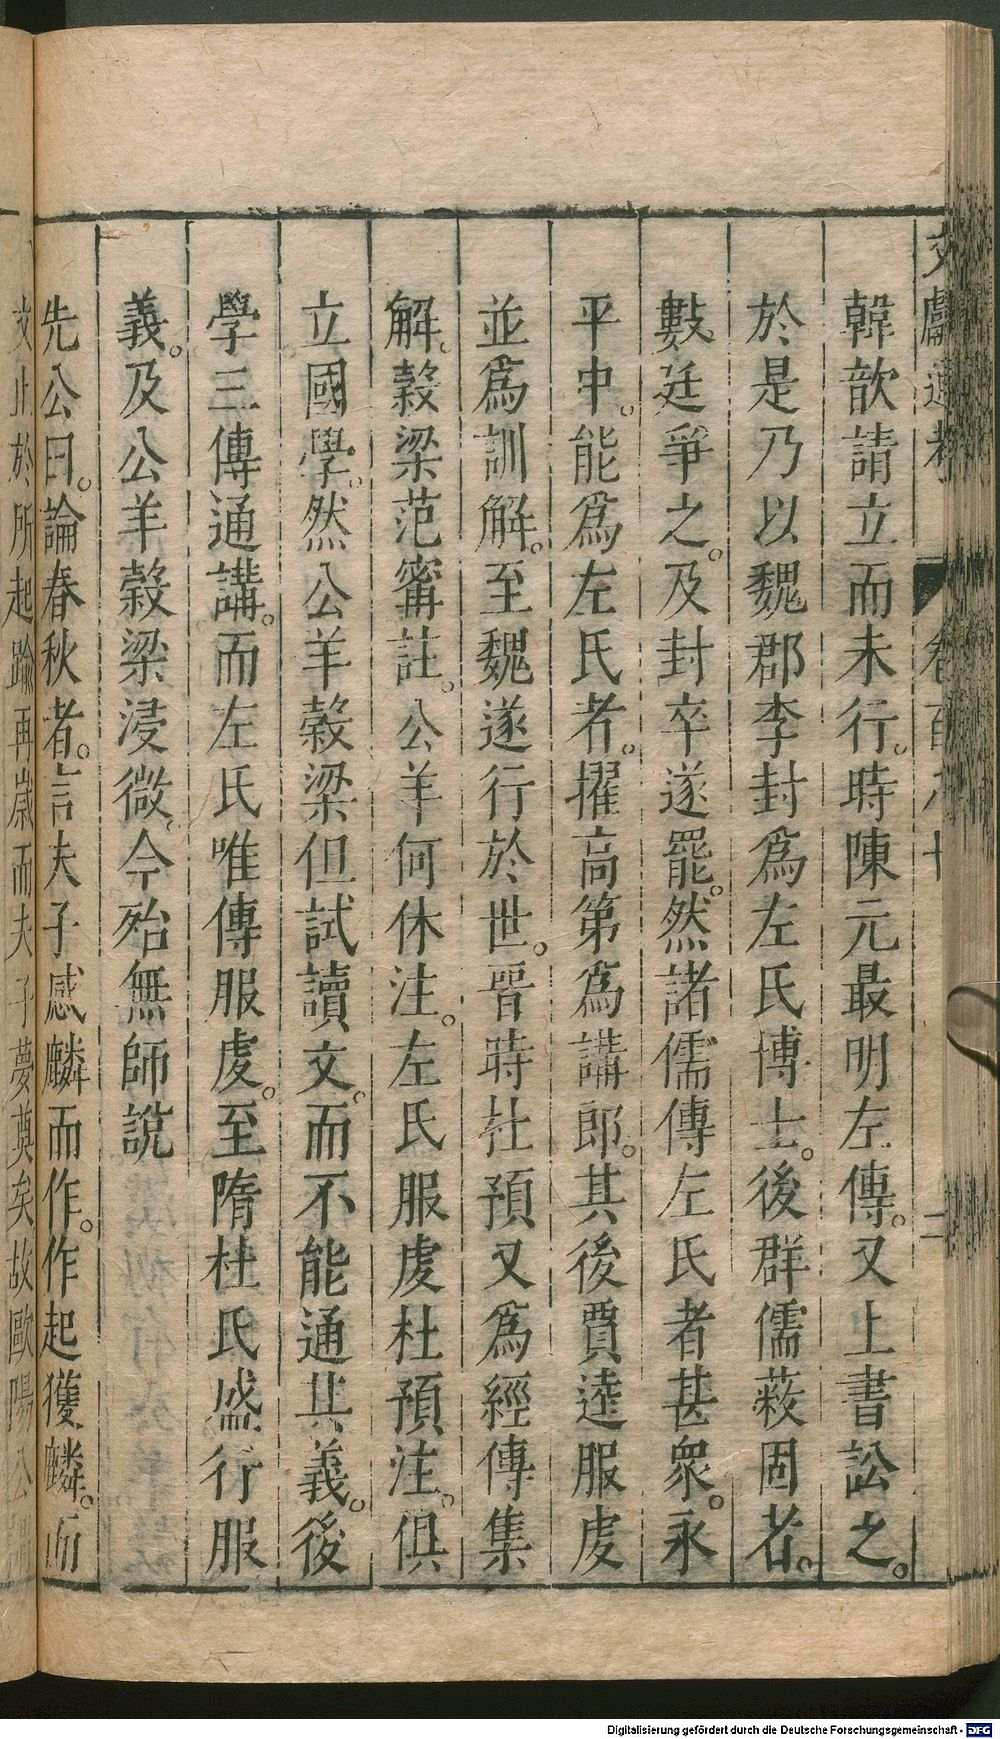 文獻通考 卷百八十 二
韓歆請立而未行。時陳元最明左傳。又上書訟之。
於是乃以魏郡李封爲左氏博士。後群儒蔽固者。
數廷爭之。及封卒遂罷。然諸儒傳左氏者甚衆。永
平中。能爲左氏者。擢高第爲講郎。其後賈逵服虔
並爲訓解。至魏遂行於世。晉時杜預又爲經傳集
解。穀梁范甯註。公羊何休注。左氏服虔杜預注。俱
立國學。然公羊穀梁但試讀文。而不能通其義。後
學三傳通講。而左氏唯傳服虔。至隋杜氏盛行服
義。及公羊穀梁浸微。今殆無師說
先公曰。論春秋者。言夫子感麟而作。作起獲麟。而
文止於所起踰再歲而夫子夢奠矣故歐陽公
Digitalisierung gefördert durch die Deutsche Forschungsgemeinschaft - DFG